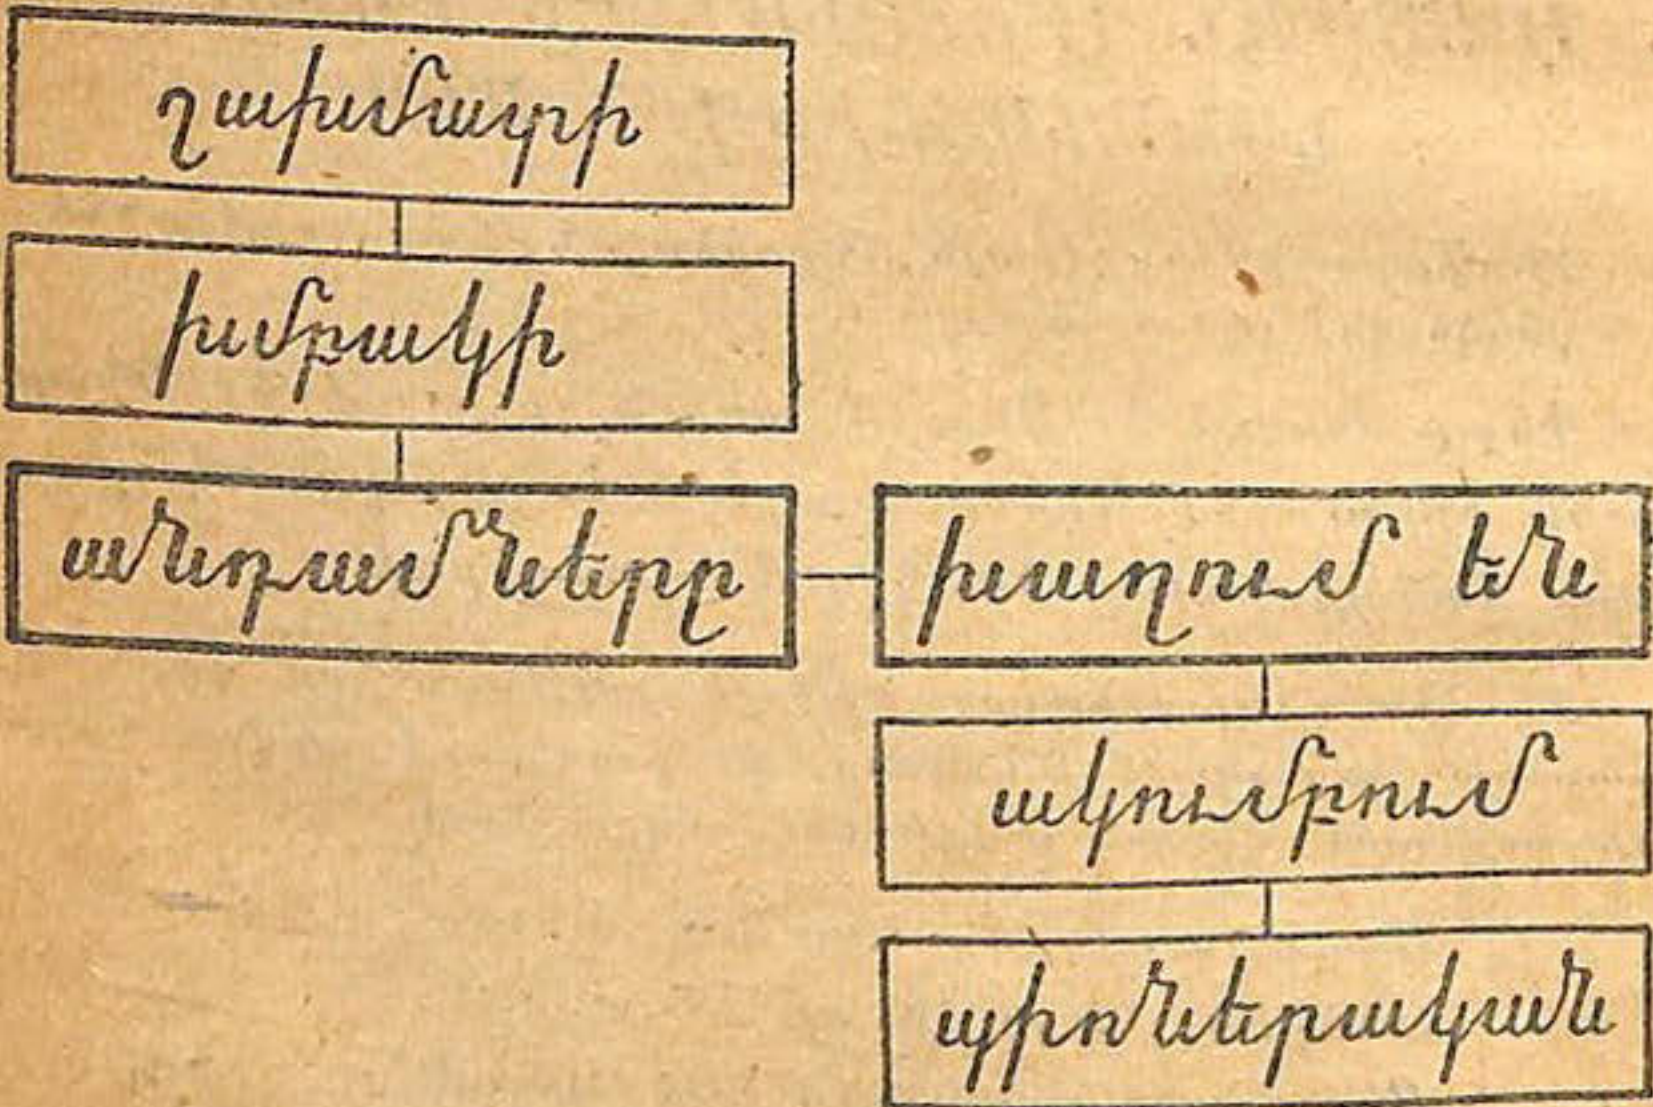 շախմատի
խմբակի
անդամները
խաղում են
ակումբում
պիոներական